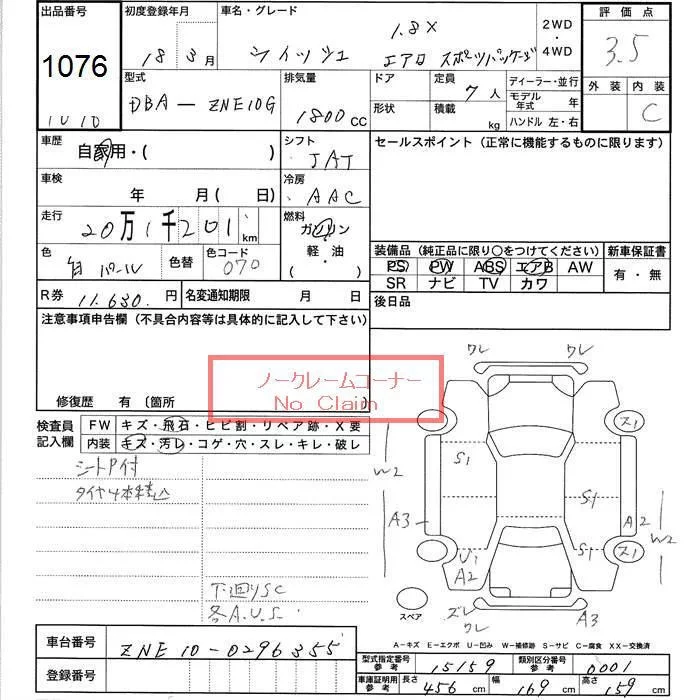 出品番号 初度登録年月 車名・グレード 2WD・4WD 評価点
1076 18年3月 ウィッシュ 1.8X エアロ スポーツパッケージ 3.5
外装 内装
C
型式 排気量 ドア 定員 ディーラー・並行
DBA-ZNE10G 1800cc 7人 モデル年式 年
形状 積載 kg ハンドル 左・右
車歴 自家用・( ) シフト セールスポイント (正常に機能するものに限ります)
車検 年 月 ( 日) 冷房 AAC
走行 20万1千201km 燃料 ガソリン
軽・油
・( )
色 白パール 色替 色コード 070
装備品 (純正品に限り○をつけてください) 新車保証書
PS PW ABS エアB AW 有・無
SR ナビ TV カワ
R券 11,630.円 名変通知期限 月 日 後日品
注意事項申告欄 (不具合内容等は具体的に記入して下さい)
ノークレームコーナー
No Claim
修復歴 有 〔箇所
検査員記入欄 FW キズ・飛石・ヒビ割・リペア跡・X要
内装 キズ・汚レ・コゲ・穴・スレ・キレ・破レ
シートP付
タイヤ4本積込
下廻りSC
各A.U.S.
ワレ ワレ
S1 S1
W2 A3 S1 S1 A2 W2
U1 A2 S1 S1
スペア ズレ ワレ A3
A-キズ E-エクボ U-凹み W-補修跡 S-サビ C-腐食 XX-交換済
車台番号 ZNE10-0296355
登録番号
型式指定番号 参考 15159 類別区分番号 参考 0001
車庫証明用 参考 長さ 456cm 幅 169cm 高さ 159cm